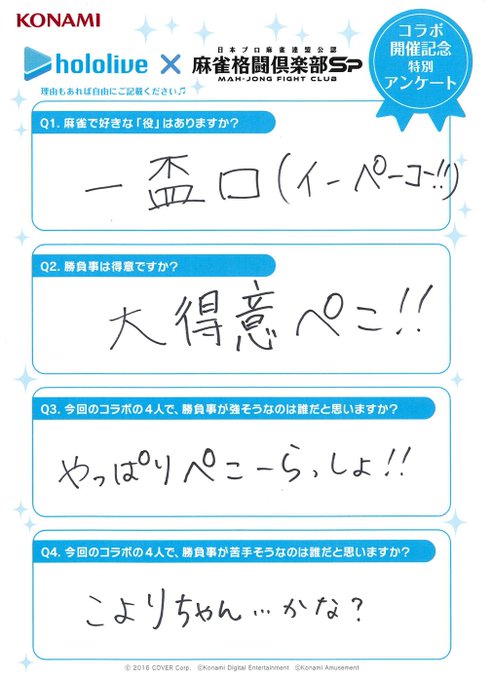 KONAMI
hololive × 日本プロ麻雀連盟公認
麻雀格闘倶楽部SP
MAH-JONG FIGHT CLUB
コラボ
開催記念
特別
アンケート
理由もあれば自由にご記載ください♫
Q1. 麻雀で好きな「役」はありますか?
一盃口(イーペーコー!!)
Q2. 勝負事は得意ですか?
大得意ぺこ!!
Q3. 今回のコラボの4人で、勝負事が強そうなのは誰だと思いますか?
やっぱりぺこーらっしょ!!
Q4. 今回のコラボの4人で、勝負事が苦手そうなのは誰だと思いますか?
こよりちゃん…かな?
© 2016 COVER Corp. ©Konami Digital Entertainment ©Konami Amusement